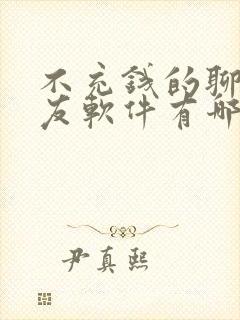 不充錢的聊
友軟件有哪
尹真熙